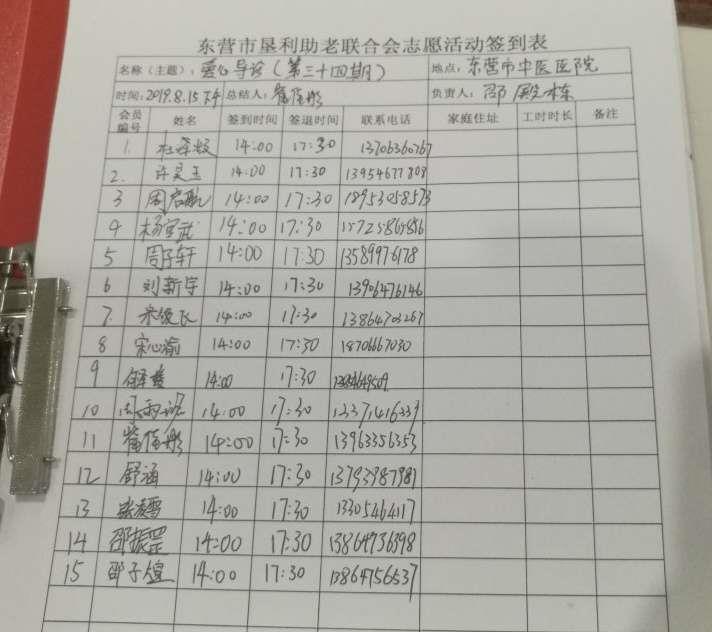 东营市垦利助老联合会志愿活动签到表
名称(主题): 爱心导诊(第三十四期) 地点: 东营市中医医院
时间: 2019.8.15下午 总结人: 崔倍彤 负责人: 邵殿栋
会员编号 姓名 签到时间 签退时间 联系电话 家庭住址 工时时长 备注
1. 14:00 17:30 13706360767
2. 许灵玉 14:00 17:30 13954677808
3 周启航 14:00 17:30 18953058573
4 杨宗武 14:00 17:30
5 周子轩 14:00 17:30 13589976178
6 刘新宇 14:00 17:30 13906476146
7. 14:00 17:30
8 宋心渝 14:00 17:30 18706667030
9 14:00 17:30
10 14:00 17:30
11 崔倍彤 14:00 17:30 13963356353
12 舒涵 14:00 17:30 13793987987
13 14:00 17:30 13305464117
14 邵振罡 14:00 17:30 13864736398
15 邵子煊 14:00 17:30 13864756537